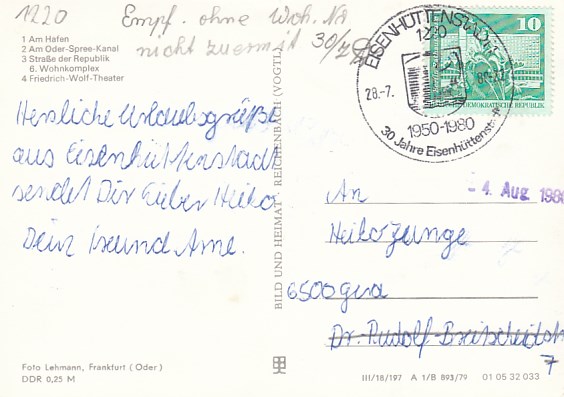 1220 Empf. ohne Woh. Nr
nicht zu ermit 30/7
1 Am Hafen
2 Am Oder-Spree-Kanal
3 Straße der Republik
6. Wohnkomplex
4 Friedrich-Wolf-Theater
Herzliche Urlaubsgrüße
aus Eisenhüttenstadt
sendet Dir lieber Heiko
Dein Freund Arne.
Foto Lehmann, Frankfurt (Oder)
DDR 0,25 M
BILD UND HEIMAT REICHENBACH (VOGTL)
EISENHÜTTENSTADT
1220
28.-7.
1950-1980
30 Jahre Eisenhüttenstadt
10
DEMOKRATISCHE REPUBLIK
- 4. Aug. 198
An
Heiko Zunge
6500 Gera
Dr.-Rudolf-Breitscheidstr
7
III/18/197 A 1/B 893/79 01 05 32 033